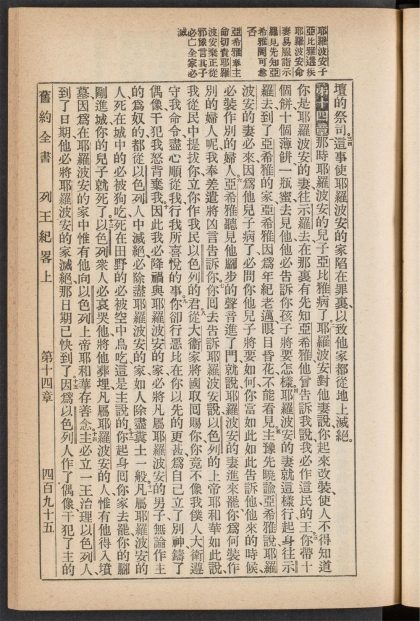 耶羅波安子
亞比雅遘疾
耶羅波安命
妻易服詣示
羅見先知亞
希雅問可愈
否
亞希雅奉主
命切責耶羅
波安棄正從
邪像言其子
必亡全家必
滅
壇的祭司、這事使耶羅波安的家陷在罪裏、以致他家都從地上滅絕。
第十四章 那時耶羅波安的兒子亞比雅病了、耶羅波安對他妻說、你起來改裝、使人不得知道
你是耶羅波安的妻、往示羅去、在那裏有先知亞希雅、他曾告訴我說、我必作這民的王、你帶十
個餅、十個薄餅、一瓶蜜、去見他、他必告訴你孩子將要怎樣、耶羅波安的妻就這樣行、起身往示
羅去、到了亞希雅的家、亞希雅因爲年紀老邁、眼目昏花、不能看見、主豫先曉諭亞希雅說、耶羅
波安的妻必來、因爲他兒子病了、必問你他兒子將要如何、你當如此如此告訴他、他來的時候
必裝作別的婦人、亞希雅聽見他腳步的聲音、進了門、就說、耶羅波安的妻進來罷、你爲何裝作
別的婦人呢、我奉差遣將凶言告訴你、你回去告訴耶羅波安說、以色列的上帝耶和華如此說、
我從民中提拔你、立你作我民以色列的君、從大衛家將國取回賜你、你竟不像我僕人大衛遵
守我命令、盡心順從我、行我所喜悅的事、你卻行惡、比在你以先的更甚、爲自己立了別神、鑄了
偶像、干犯我怒、背棄我、因此我必降禍與耶羅波安的家、必將凡屬耶羅波安的男子、無論作主
的、爲奴的、都從以色列人中滅絕、必除盡耶羅波安的家、如人除盡糞土一般、凡屬耶羅波安的
人、死在城中的、必被狗吃、死在田野的、必被空中鳥吃、這是主說的、你起身回你家去罷、你的腳
剛進城、你的兒子就死了、以色列衆人必哀哭他、將他葬埋、凡屬耶羅波安的人、惟有他得入墳
墓、因爲在耶羅波安的家中、惟有他向以色列上帝耶和華存善念、主必立一王治理以色列人、
到了日期、他必將耶羅波安的家滅絕、那日期已快到了、因爲以色列人作了偶像、干犯了主的
舊約全書 列王紀畧上 第十四章 四百九十五